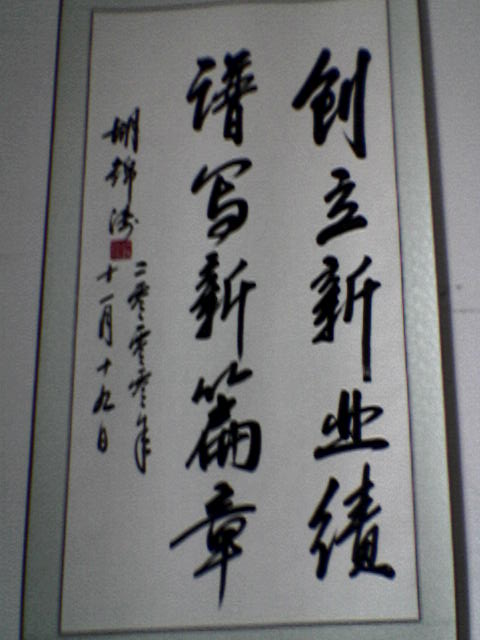 创立新业绩
谱写新篇章
胡锦涛
二零零零年
十一月十九日